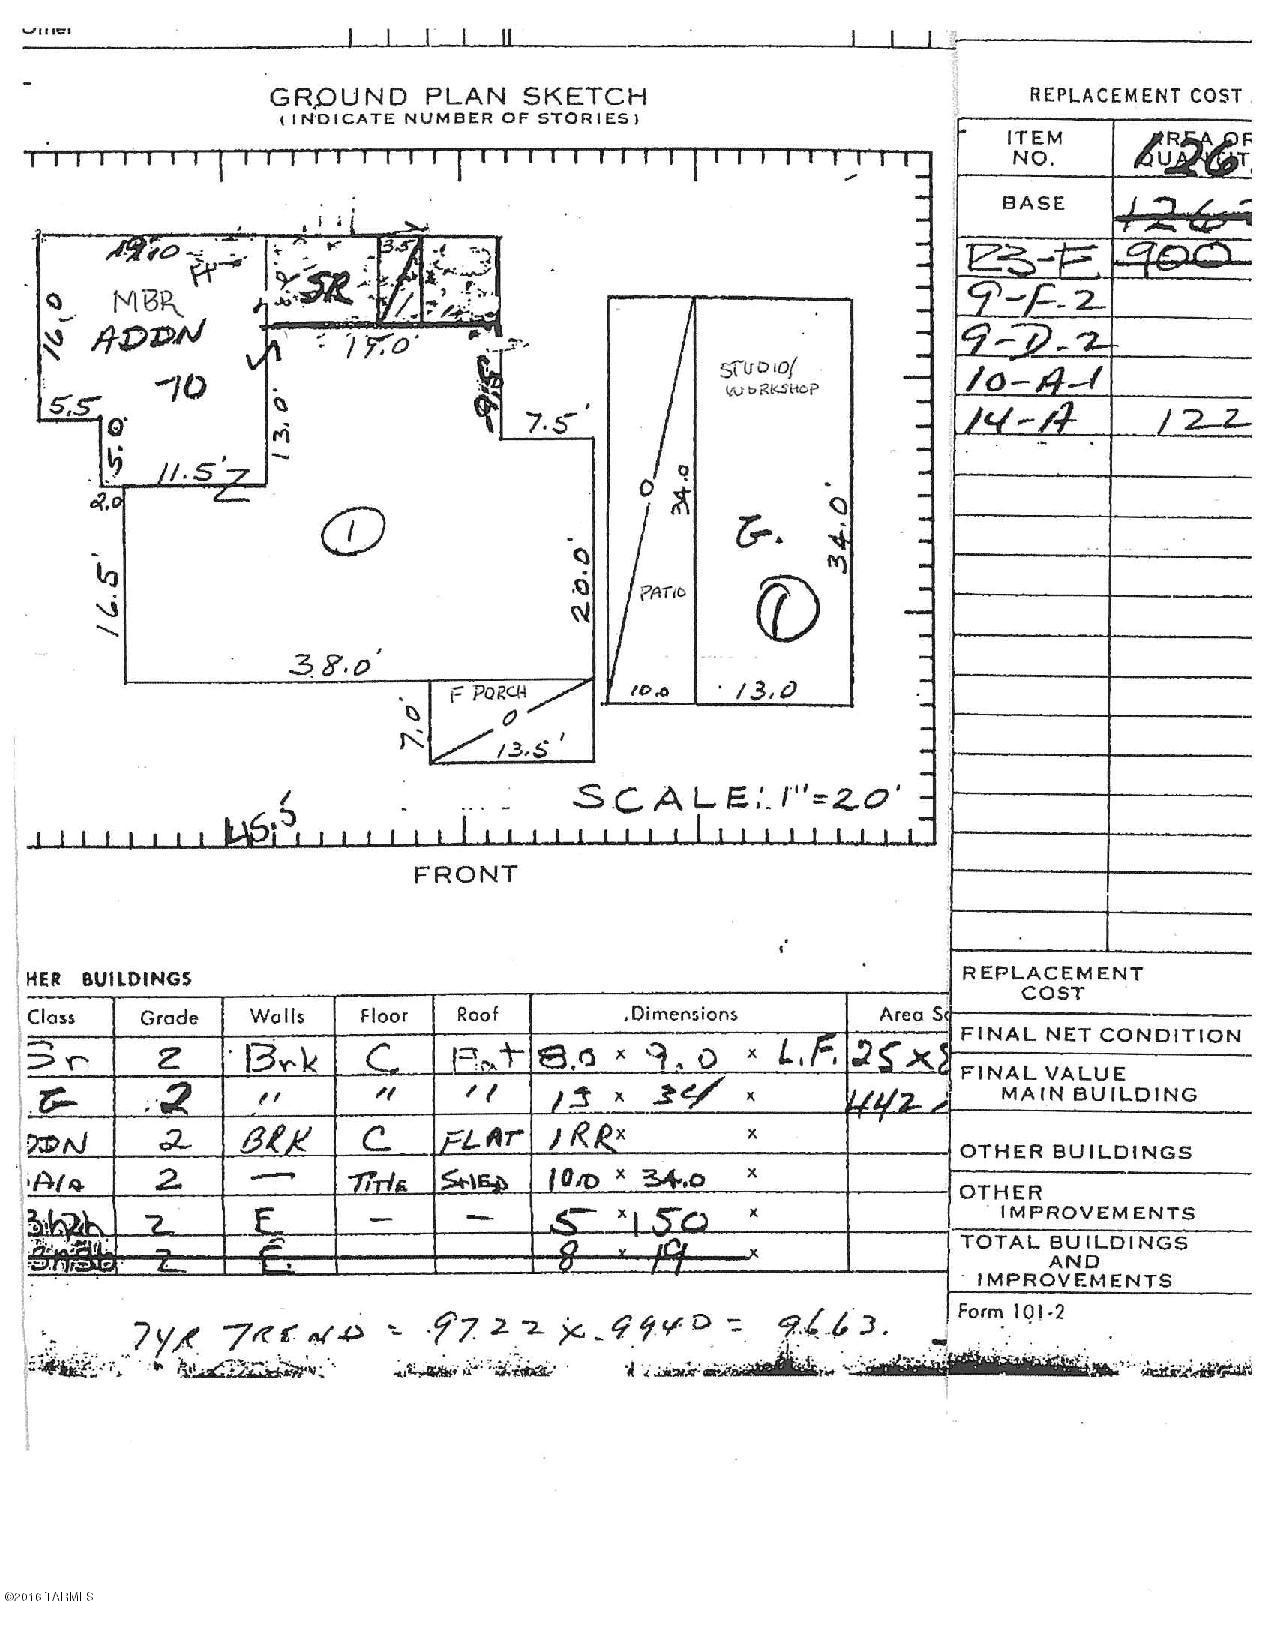 GROUND PLAN SKETCH
(INDICATE NUMBER OF STORIES)
REPLACEMENT COST
ITEM NO.
AREA OR
126
BASE
900
9-F.2
9-D-2
10-A-1
14-A 122
MBR
ADDN
70
16.0
5.5
5.0
11.5'
2.0
13.0'
SR
3.5
9.5
7.5'
1
16.5'
20.0'
38.0'
F PORCH
O
7.0'
13.5'
STUDIO/
WORKSHOP
O
34.0
G.
34.0'
PATIO
1
10.0
13.0
SCALE: 1"=20'
45.5'
FRONT
HER BUILDINGS
Class Grade Walls Floor Roof Dimensions Area
Sr 2 Brk C Flat 8.0 x 9.0 x L.F. 25 x 8
G 2 " " " 13 x 34 x 442
DDN 2 BRK C FLAT IRR x x
2 — SHED 10.0 x 34.0 x
2 E — — 5 x 150 x
2 E 8 x 19 x
REPLACEMENT
COST
FINAL NET CONDITION
FINAL VALUE
MAIN BUILDING
OTHER BUILDINGS
OTHER
IMPROVEMENTS
TOTAL BUILDINGS
AND
IMPROVEMENTS
Form 101-2
74R TREND = .9722 x .9940 = 9663.
©2016 TARMLS